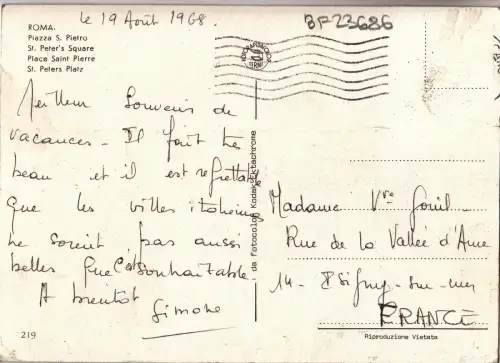 le 19 Août 1968.
BP23686
ROMA.
Piazza S. Pietro
St. Peter's Square
Place Saint Pierre
St. Peters Platz
Meilleur Souvenir de
vacances - Il fait tre
beau et il est regrettable
que les villes italiennes
ne soient pas aussi
belles que souhaitable.
A bientôt
Simone
- da Fotocolor Kodak Ektachrome
Madame Vve
Rue de la Vallée d'Aure
14 - Isigny-sur-mer
FRANCE
219
Riproduzione Vietata